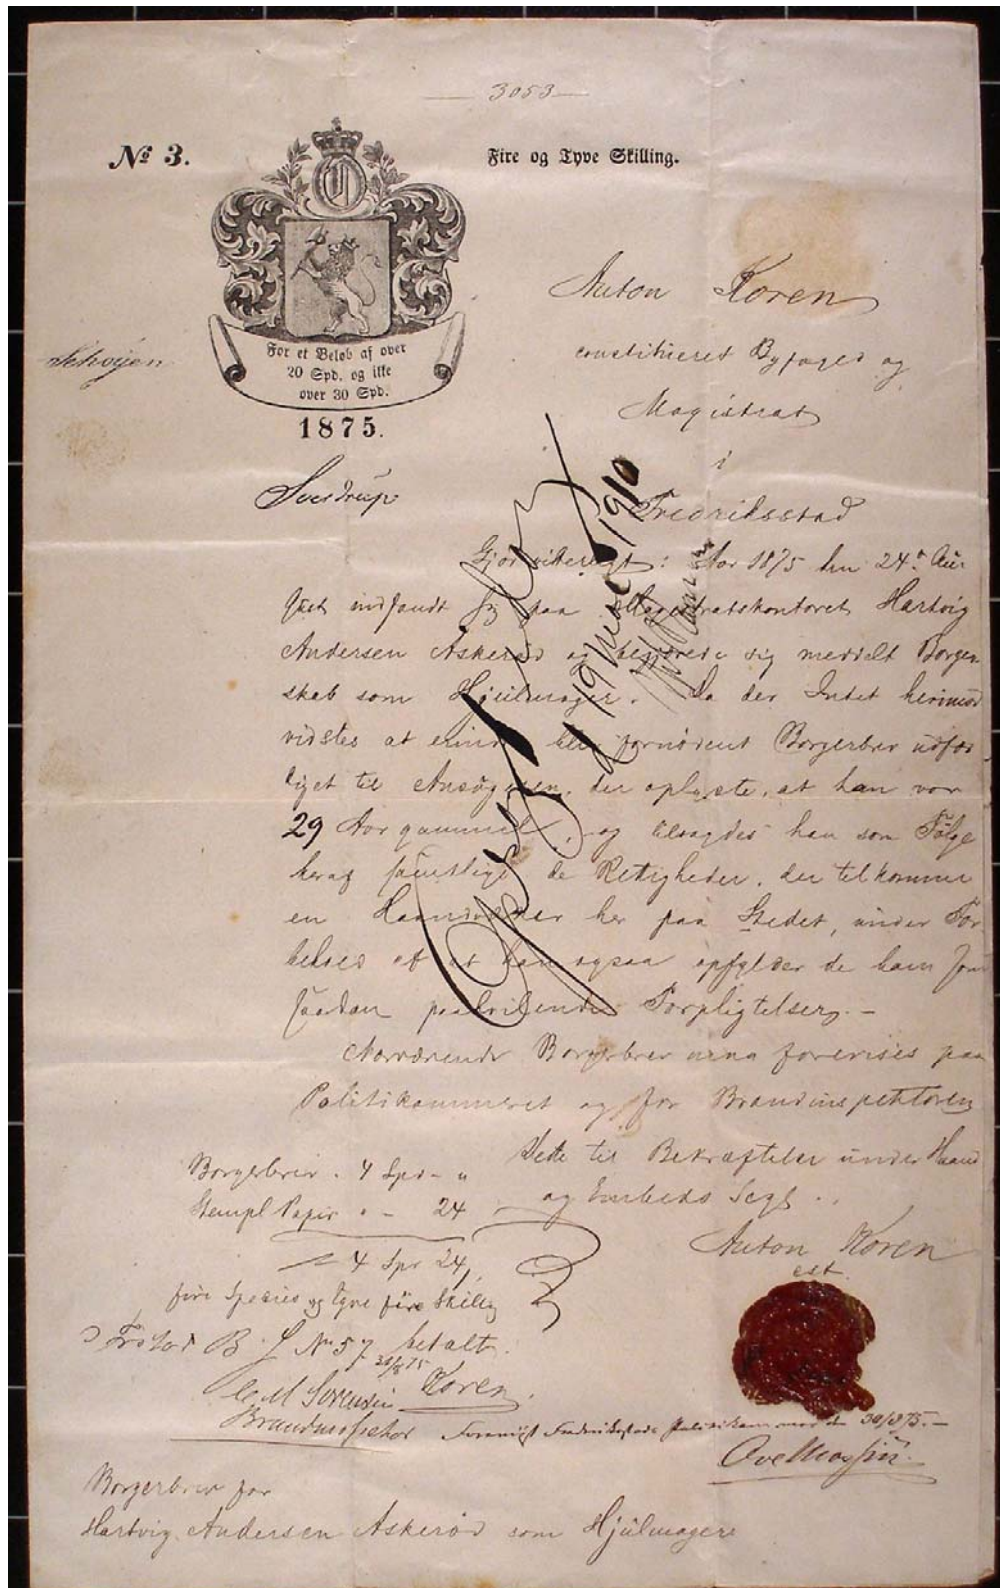 3053
No 3.
Fire og Tyve Skilling.
O
For et Beløb af over
20 Spd. og ikke
over 30 Spd.
1875.
Schøyen
Sverdrup
Anton Koren
constitueret Byfoged og
Magistrat
i
Fredriksstad
Gjør vitterligt: Aar 1875 den 24de Au-
gust indfandt sig paa Magistratskontoret Hartvig
Andersen Askerød og begjærede sig meddelt Borger
skab som Hjulmager. Da der Intet herimod
vidstes at erindre blev fornødent Borgerbrev udfær
diget til Ansøgeren, der oplyste, at han var
29 Aar gammel, og tilsagdes han som Følge
heraf samtlige de Rettigheder, der tilkommer
en Haandværker her paa Stedet, under For
af at han ogsaa opfylder de ham som
saadan paahvilende Forpligtelser. -
Nærværende Borgerbrev maa forevises paa
Politikammeret og for Brandinspektøren
Dette til Bekræftelse under Haand
og Embeds Segl.
Anton Koren
cst.
Borgerbrev . 4 Spd - "
Stempl Papir " - 24
4 Spd 24,
fire Species og tyve fire Skilling
betalt.
Koren.
Frstad B. J No 57
30/8 75
C. M Sørensen
Brandinspektør
Forevist Fredriksstads Politikammer den 30/8 75. -
Borgerbrev for
Hartvig Andersen Askerød som Hjulmager